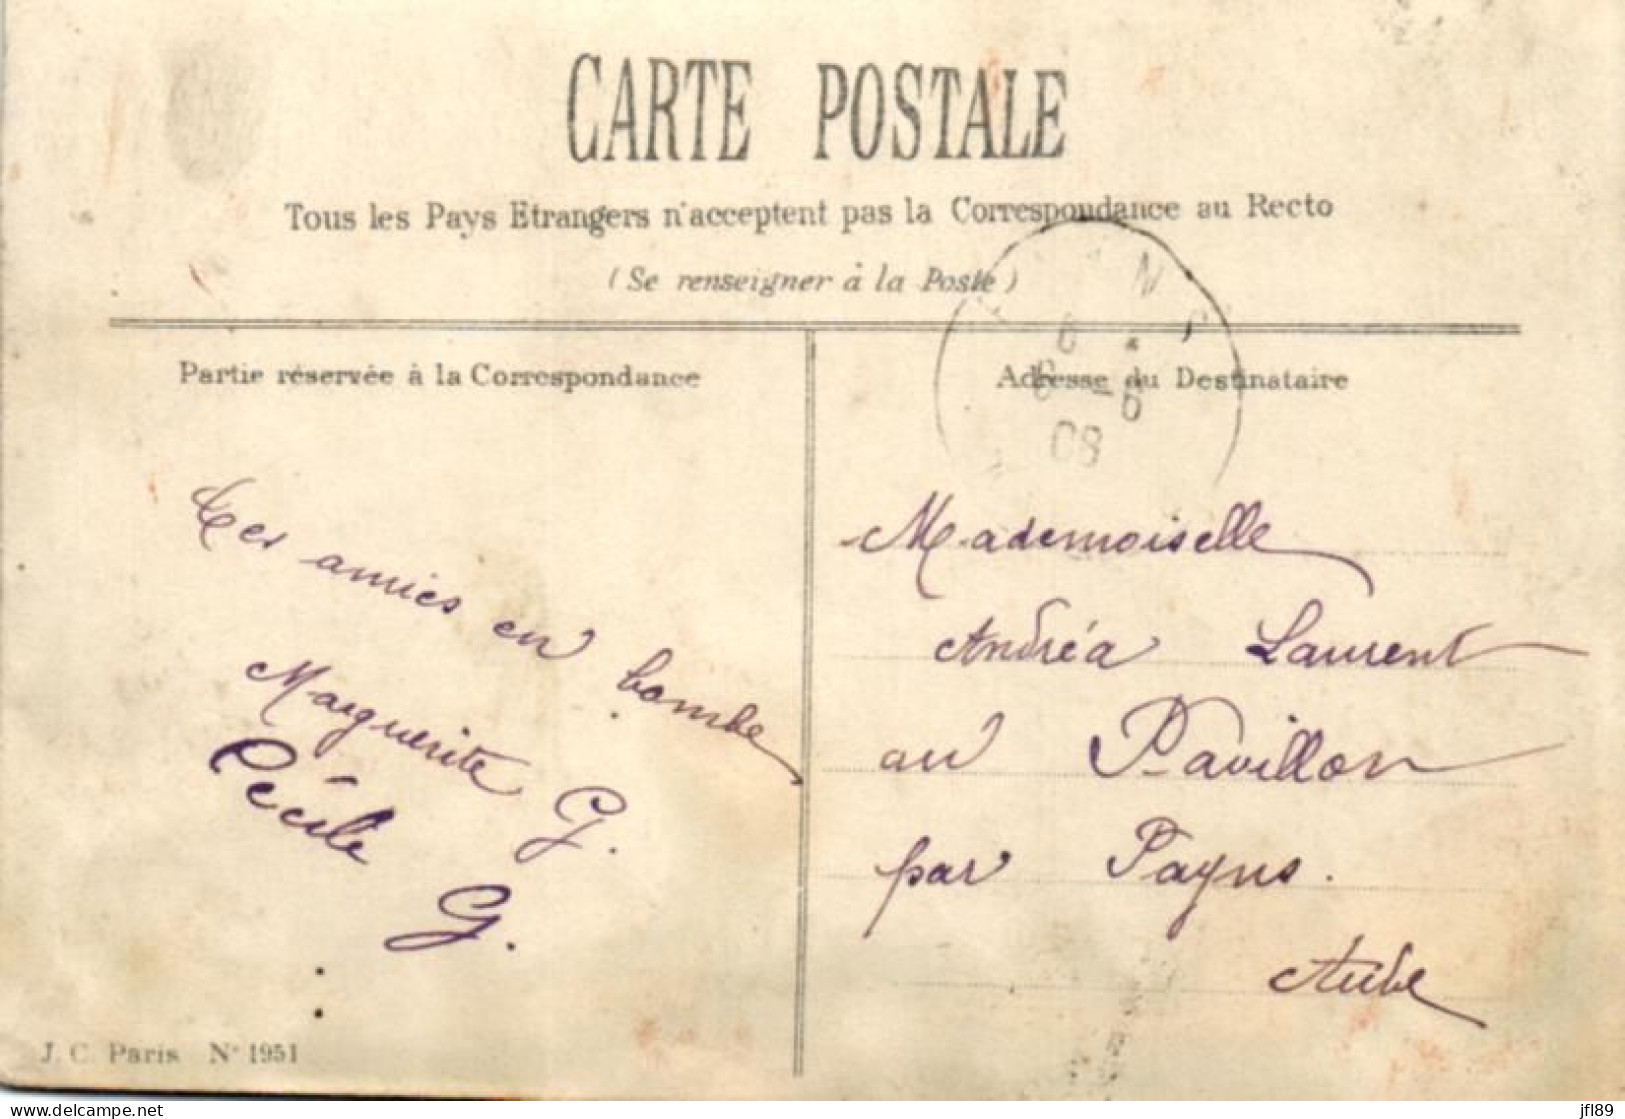 CARTE POSTALE
Tous les Pays Etrangers n'acceptent pas la Correspondance au Recto
(Se renseigner à la Poste)
Partie réservée à la Correspondance
Tes amies en bombe
Marguerite G.
Cécile G.
J. C. Paris N° 1951
Adresse du Destinataire
08
Mademoiselle
Andréa Laurent
au Pavillon
par Payns.
Aube
delcampe.net
jfl89